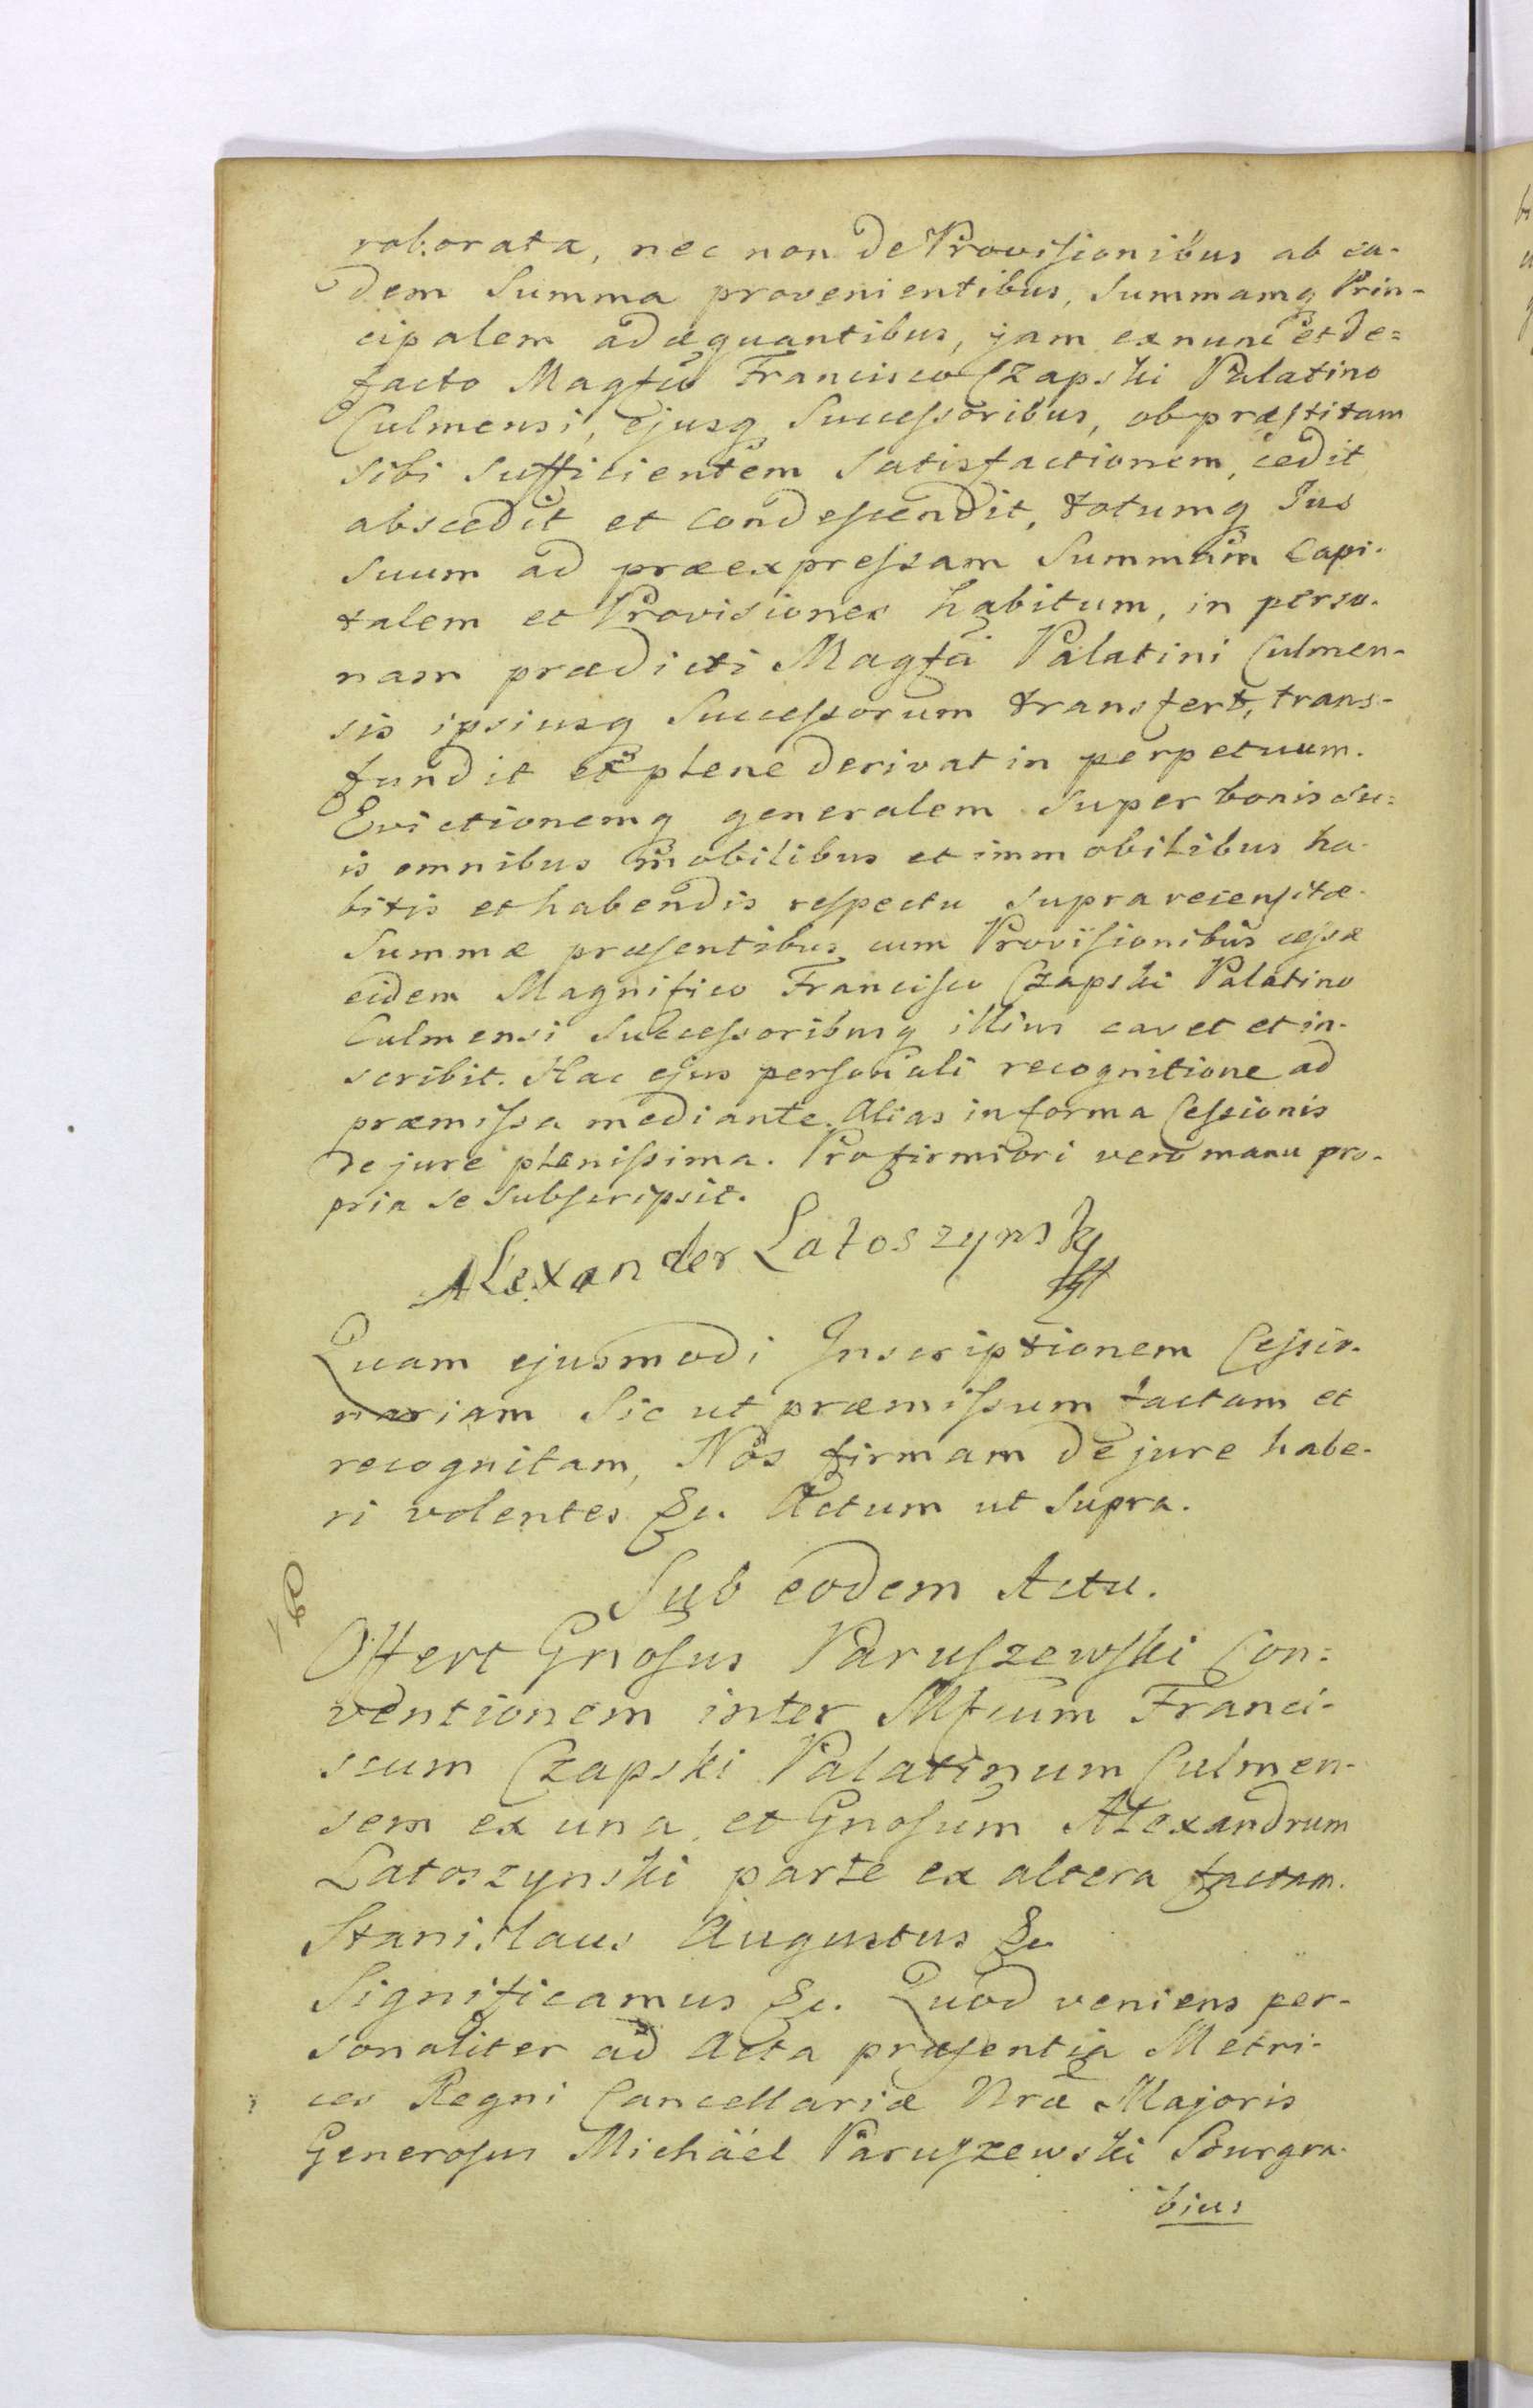 roborata, nec non de Provisionibus ab ea-
dem Summa provenientibus, Summamq Prin-
cipalem adæquantibus, jam ex nunc et de=
facto Magfco Francisco Czapski Palatino
Culmensi, ejusq Successoribus, ob præstitam
sibi sufficientem satisfactionem, cedit
abscedit et condescendit, totumq Jus
suum ad præexpressam Summam Capi-
talem et Provisiones habitum, in perso-
nam prædicti Magfci Palatini Culmen-
sis ipsiusq Successorum transfert, trans-
fundit et plene derivat in perpetuum.
Evictionemq generalem super bonis su=
is omnibus mobilibus et immobilibus ha-
bitis et habendis respectu supra recensitæ
Summæ præsentibus cum Provisionibus cessæ
eidem Magnifico Francisco Czapski Palatino
Culmensi Successoribusq illius cavet et in-
scribit. Hac ejus personali recognitione ad
præmissa mediante. Alias in forma Cessionis
de jure plenissima. Pro firmiori vero manu pro-
pria se subscripsit.
Alexander Latoszynsky
Quam ejusmodi Inscriptionem Cessio-
nariam sic ut præmissum factam et
recognitam, Nos firmam de jure habe-
ri volentes &c. Actum ut supra.
Sub eodem Actu.
Offert Gnosus Paruszewski Con=
ventionem inter Mfcum Franci-
scum Czapski Palatinum Culmen-
sem ex una, et Gnosum Alexandrum
Latoszynski parte ex altera factam.
Stanislaus Augustus &c
Significamus &c. Quod veniens per-
sonaliter ad Acta præsentia Metri-
ces Regni Cancellariæ Nræ Majoris
Generosus Michäel Paruszewski Burgra-
bius